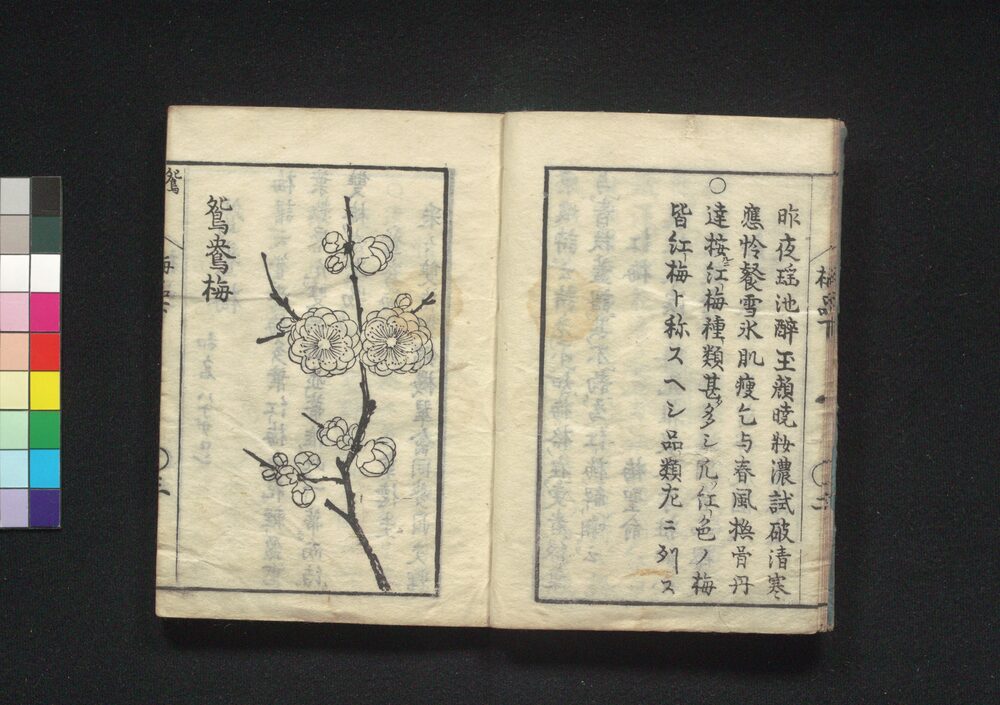 昨夜瑶池醉玉顔曉妝濃試破清寒
應怜餐雪氷肌瘦乞与春風換骨丹
○達按紅梅種類甚多シ凡紅色ノ梅
皆紅梅ト称スヘシ品類左ニ列ス
梅品下
鴛鴦梅
鴛